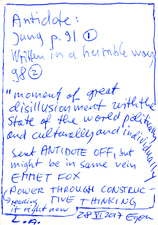 Antidote:
Jung p. 91 1
Written in a humble way
98 2
"moment of great
disillusionment with the
state of the world politically
and culturally and individually
Sent ANTIDOTE OFF, but
might be in same vein
EMMET FOX
POWER THROUGH CONSTRUC-
TIVE THINKING
reading
it right now
28 VI 2017
L.A.